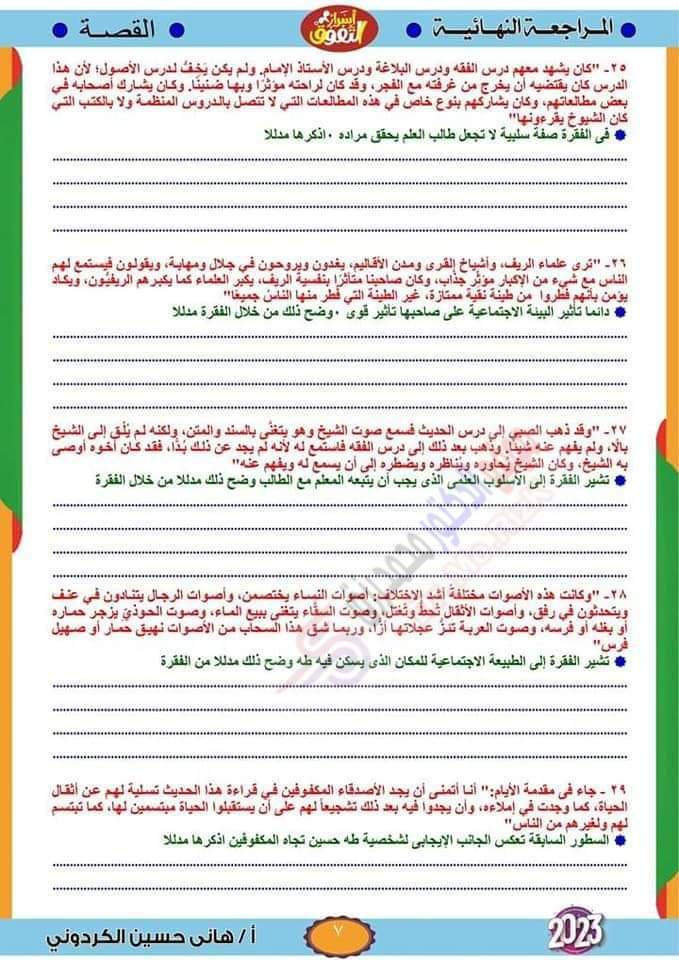 المراجعة النهائية
أسرار التفوق
القصة
٢٥- "كان يشهد معهم درس الفقه ودرس البلاغة ودرس الأستاذ الإمام. ولم يكن يَخِفُّ لدرس الأصول؛ لأن هذا
الدرس كان يقتضيه أن يخرج من غرفته مع الفجر، وقد كان لراحته مؤثرًا وبها ضنينًا. وكان يشارك أصحابه في
بعض مطالعاتهم، وكان يشاركهم بنوع خاص في هذه المطالعات التي لا تتصل بالدروس المنظمة ولا بالكتب التي
كان الشيوخ يقرءونها"
فى الفقرة صفة سلبية لا تجعل طالب العلم يحقق مراده ٠اذكرها مدللا
٢٦- "ترى علماء الريف، وأشياخ القرى ومدن الأقاليم، يغدون ويروحون في جلال ومهابة، ويقولون فيستمع لهم
الناس مع شيء من الإكبار مؤثر جذاب، وكان صاحبنا متأثرًا بنفسية الريف، يكبر العلماء كما يكبرهم الريفيُّون، ويكاد
يؤمن بأنهم فطروا من طينة نقية ممتازة، غير الطينة التي فُطر منها الناسُ جميعًا"
دائما تأثير البيئة الاجتماعية على صاحبها تأثير قوى ٠وضح ذلك من خلال الفقرة مدللا
٢٧- "وقد ذهب الصبى إلى درس الحديث فسمع صوت الشيخ وهو يتغنَّى بالسند والمتن، ولكنه لم يُلْقِ إلى الشيخ
بالًا، ولم يفهم عنه شيئًا. وذهب بعد ذلك إلى درس الفقه فاستمع له لأنه لم يجد عن ذلك بُدًّا، فقد كان أخوه أوصى
به الشيخ، وكان الشيخ يُحاوره ويُناظره ويضطره إلى أن يسمع له ويفهم عنه"
تشير الفقرة إلى الاسلوب العلمى الذى يجب أن يتبعه المعلم مع الطالب وضح ذلك مدللا من خلال الفقرة
٢٨- "وكانت هذه الأصوات مختلفة أشد الاختلاف: أصوات النساء يختصمن، وأصوات الرجال يتنادون في عنف
ويتحدثون في رفق، وأصوات الأثقال تُحطُّ وتُعْتَل، وصوت السقَّاء يتغنى ببيع الماء، وصوت الحوذيِّ يزجر حماره
أو بغله أو فرسه، وصوت العربة تئزُّ عجلاتها أزًّا، وربما شق هذا السحاب من الأصوات نهيق حمار أو صهيل
فرس"
تشير الفقرة إلى الطبيعة الاجتماعية للمكان الذى يسكن فيه طه وضح ذلك مدللا من الفقرة
٢٩- جاء فى مقدمة الأيام:" أنا أتمنى أن يجد الأصدقاء المكفوفين في قراءة هذا الحديث تسلية لهم عن أثقال
الحياة، كما وجدت في إملاءه، وأن يجدوا فيه بعد ذلك تشجيعاً لهم على أن يستقبلوا الحياة مبتسمين لها، كما تبتسم
لهم ولغيرهم من الناس"
السطور السابقة تعكس الجانب الإيجابى لشخصية طه حسين تجاه المكفوفين اذكرها مدللا
2023
٧
أ/ هانى حسين الكردوني